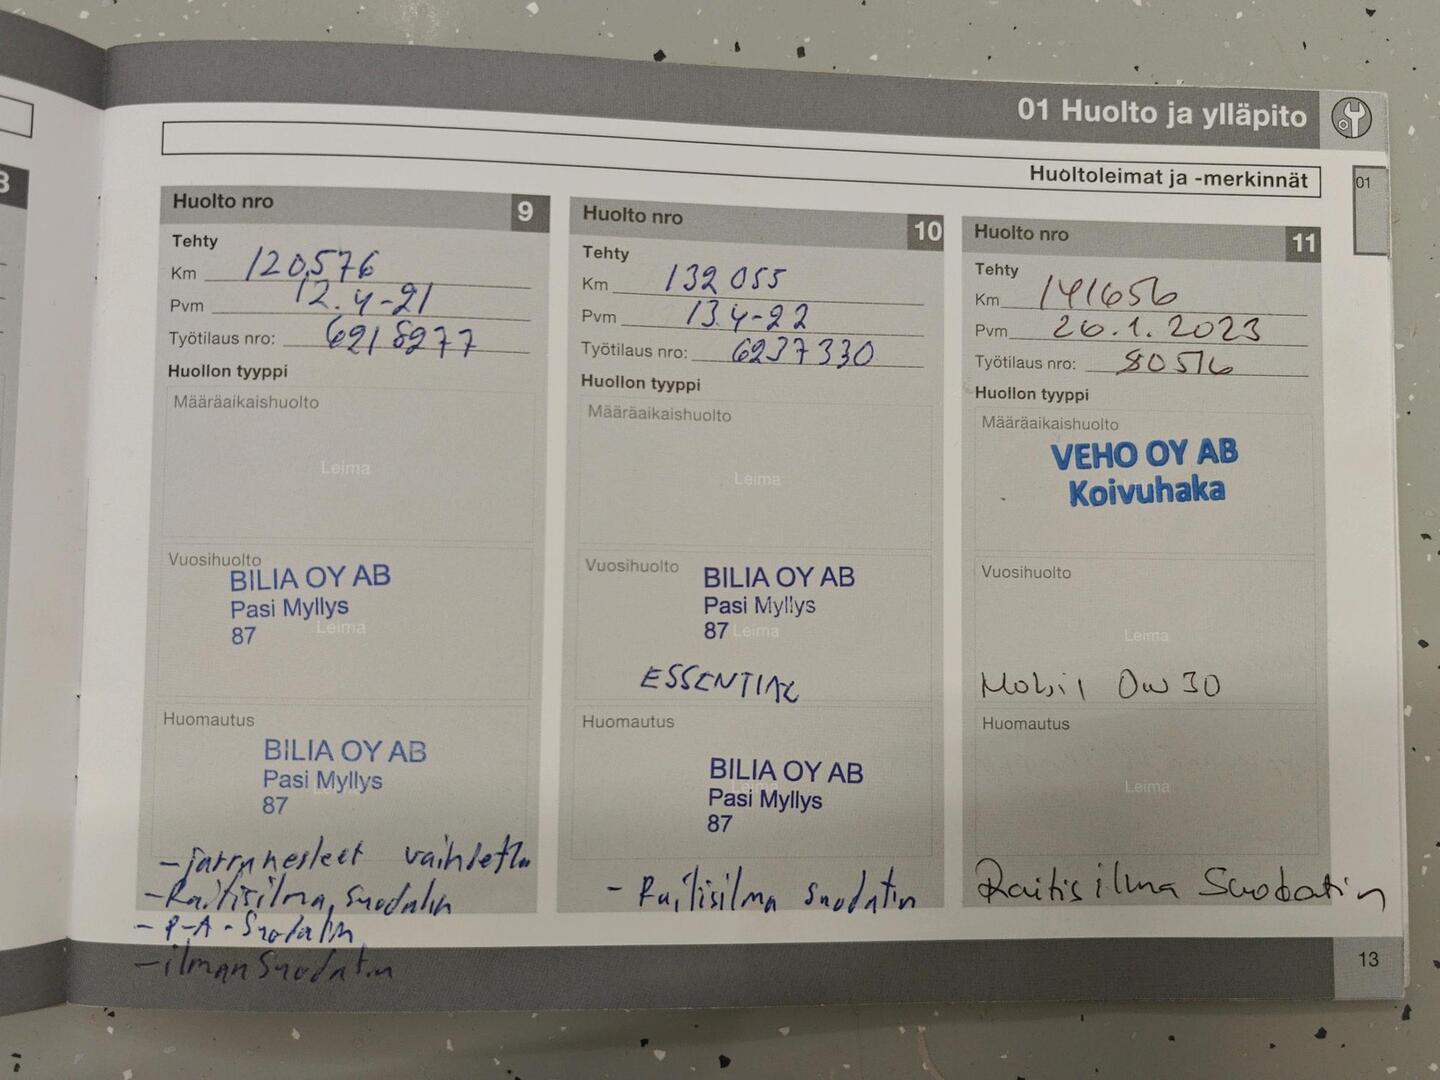 01 Huolto ja ylläpito
Huoltoleimat ja -merkinnät
01
3
Huolto nro 9
Tehty
Km 120576
Pvm 12.4-21
Työtilaus nro: 6218277
Huollon tyyppi
Määräaikaishuolto
Leima
Vuosihuolto
BILIA OY AB
Pasi Myllys
87
Leima
Huomautus
BILIA OY AB
Pasi Myllys
87
Leima
- jarrunesteet vaihdettu
- Raitisilma suodatin
- P-A-Suodatin
- ilman Suodatin
Huolto nro 10
Tehty
Km 132 055
Pvm 13.4-22
Työtilaus nro: 6237330
Huollon tyyppi
Määräaikaishuolto
Leima
Vuosihuolto
BILIA OY AB
Pasi Myllys
87
Leima
ESSENTIAL
Huomautus
BILIA OY AB
Pasi Myllys
87
Leima
- Raitisilma suodatin
Huolto nro 11
Tehty
Km 141656
Pvm 26.1.2023
Työtilaus nro: 80516
Huollon tyyppi
Määräaikaishuolto
VEHO OY AB
Koivuhaka
Vuosihuolto
Leima
Mobil 0w30
Huomautus
Leima
Raitisilma Suodatin
13